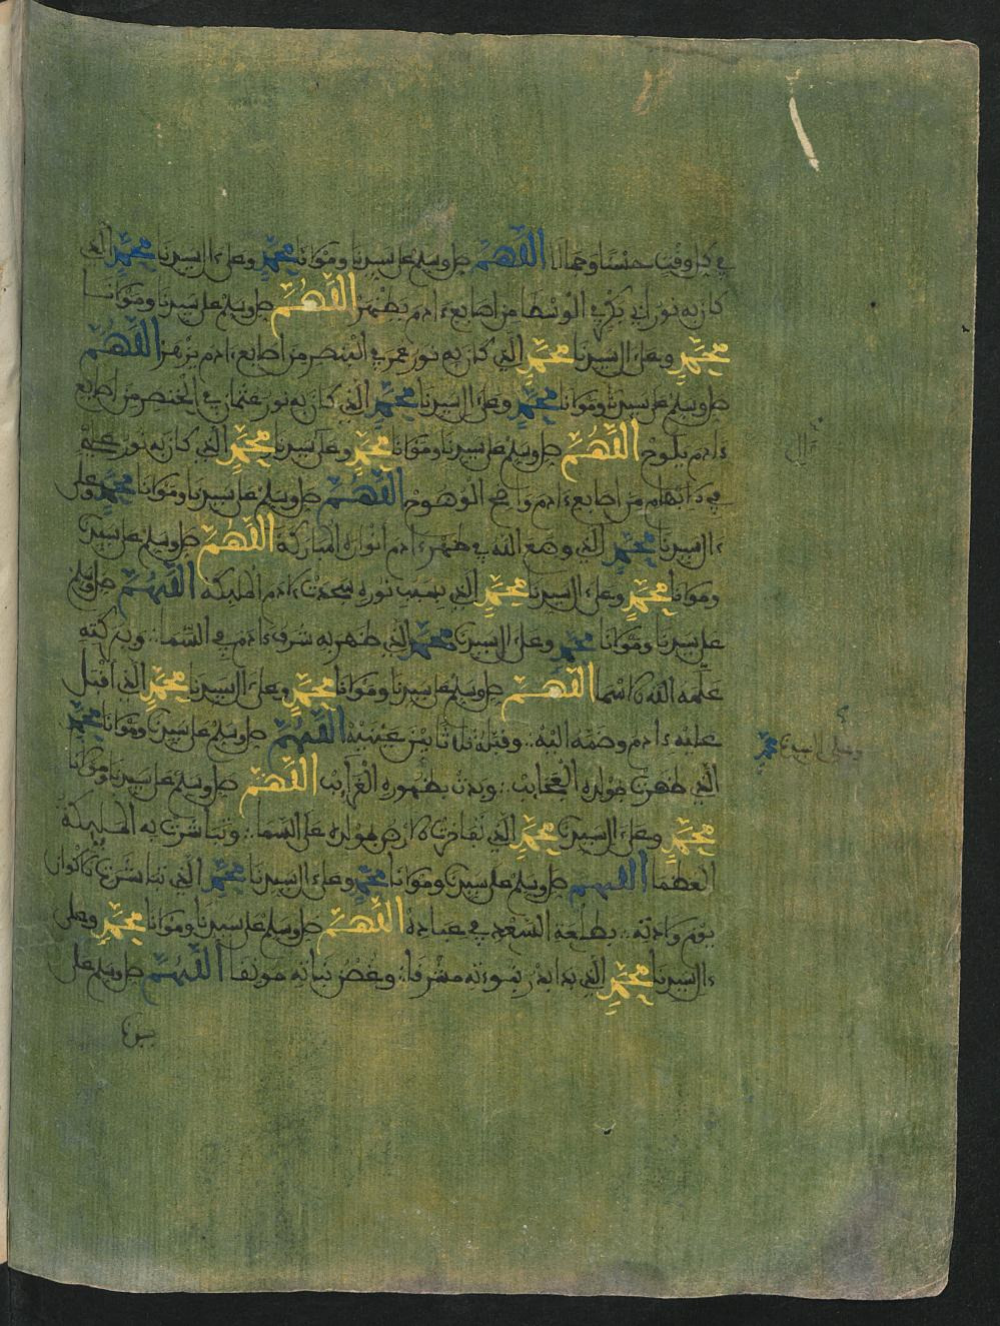 في كل وقت حسنا وجمالا اللهم صل وسلم على سيدنا ومولانا محمد وعلى ءال سيدنا محمد الذي
كان به نور ابي بكر في الوسطا من اصابع ءادم يظهر اللهم صل وسلم على سيدنا ومولانا
محمد وعلى ءال سيدنا محمد الذي كان به نور عمر في البنصر من اصابع ءادم يزهر اللهم
صل وسلم على سيدنا ومولانا محمد وعلى ءال سيدنا محمد الذي كان به نور عثمان في الخنصر من اصابع
ءادم يلوح اللهم صل وسلم على سيدنا ومولانا محمد وعلى ءال سيدنا محمد الذي كان به نور علي
في الابهام من اصابع ءادم واضح الوضوح اللهم صل وسلم على سيدنا ومولانا محمد وعلى
ءال سيدنا محمد الذي وضع الله في ظهر ءادم انواره المباركة اللهم صل وسلم على سيدنا
ومولانا محمد وعلى ءال سيدنا محمد الذي بسبب نوره سجدت لادم الملئكة اللهم صل وسلم
على سيدنا ومولانا محمد وعلى ءال سيدنا محمد الذي ظهر به شرف ءادم في السما وببركته
علمه الله الاسما اللهم صل وسلم على سيدنا ومولانا محمد وعلى ءال سيدنا محمد الذي اقبل
عليه ءادم وضمه اليه وقبله ثلاثا بين عينيه اللهم صل وسلم على سيدنا ومولانا محمد
وعلى ءال سيدنا محمد
الذي ظهرت لمولده العجايب وبدت بظهوره الغرايب اللهم صل وسلم على سيدنا ومولانا
محمد وعلى ءال سيدنا محمد الذي تفاخرت الارض بمولده على السما وتباشرت به الملئكة
العظما اللهم صل وسلم على سيدنا ومولانا محمد وعلى ءال سيدنا محمد الذي تباشرت الاكوان
يوم ولادته بطلعة السعد في عباده اللهم صل وسلم على سيدنا ومولانا محمد وعلى
ءال سيدنا محمد الذي بدا بدر نبوءته مشرفا وغصن نباته مونفا اللهم صل وسلم على